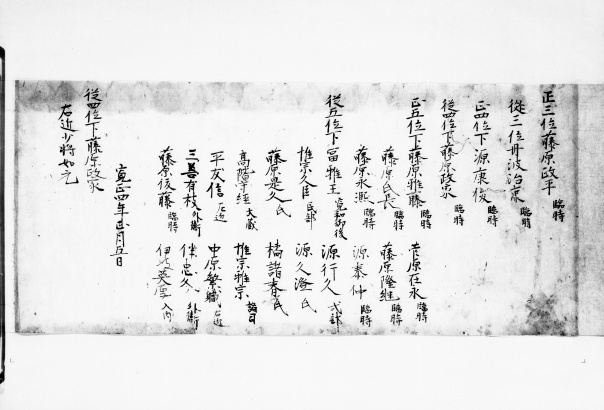 正三位藤原政平 臨時
從三位丹波治康 臨時
正四位下源康俊 臨時
從四位下藤原政家 臨時
正五位下藤原雅藤 臨時 菅原在永 臨時
藤原氏長 臨時 藤原隆継 臨時
藤原永熙 臨時 源泰仲 臨時
從五位下冨雅王 寛和御後 源行久 式部
惟宗久住 民部 源久澄 氏
藤原是久 氏 橘諸春 氏
高階学経 大蔵 惟宗雅宗 諸司
平友信 左近 中原繁職 右近
三善有枝 外衛 伴忠久 外衛
藤原俊藤 臨時 伊 内
寛正四年正月五日
從四位下藤原政家
右近少将如元